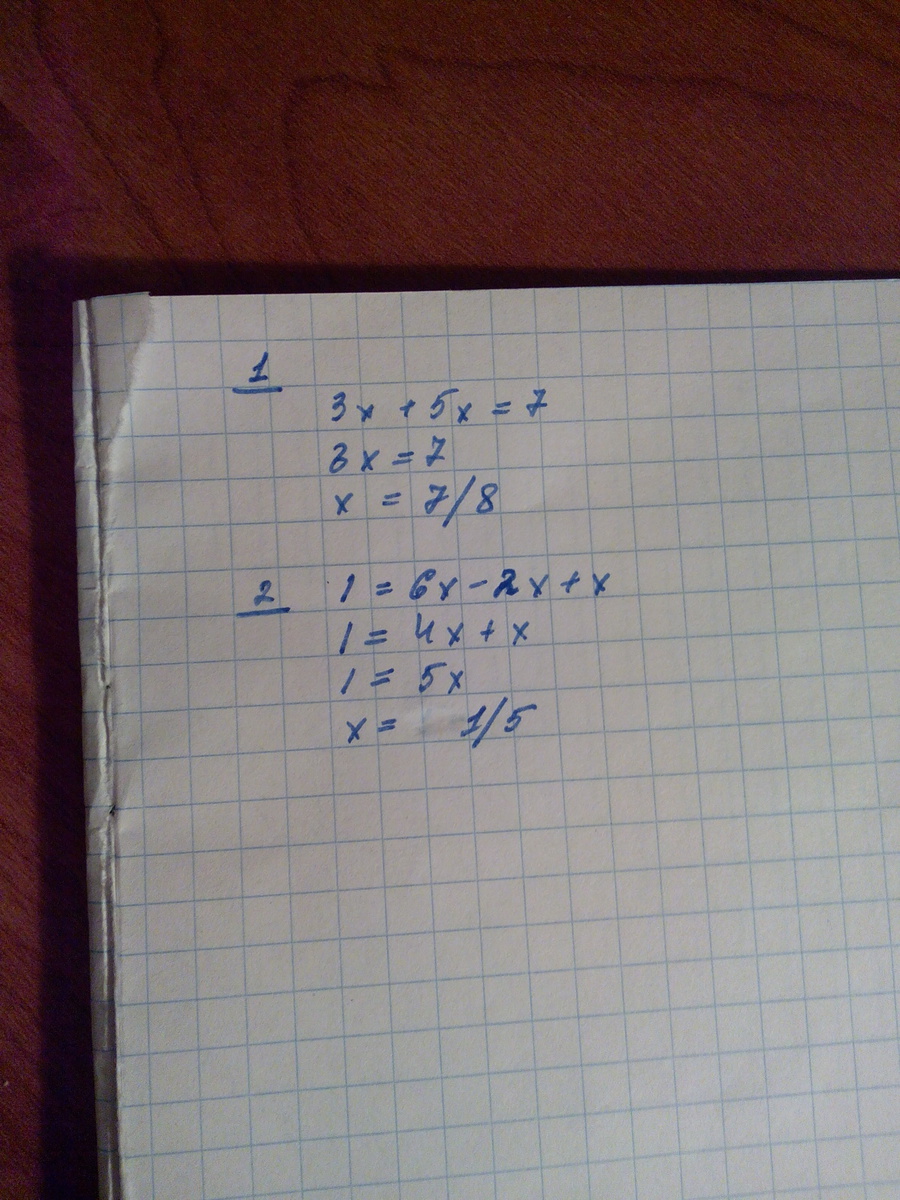 1
3x + 5x = 7
8x = 7
x = 7/8
2 1 = 6x - 2x + x
1 = 4x + x
1 = 5x
x = 1/5